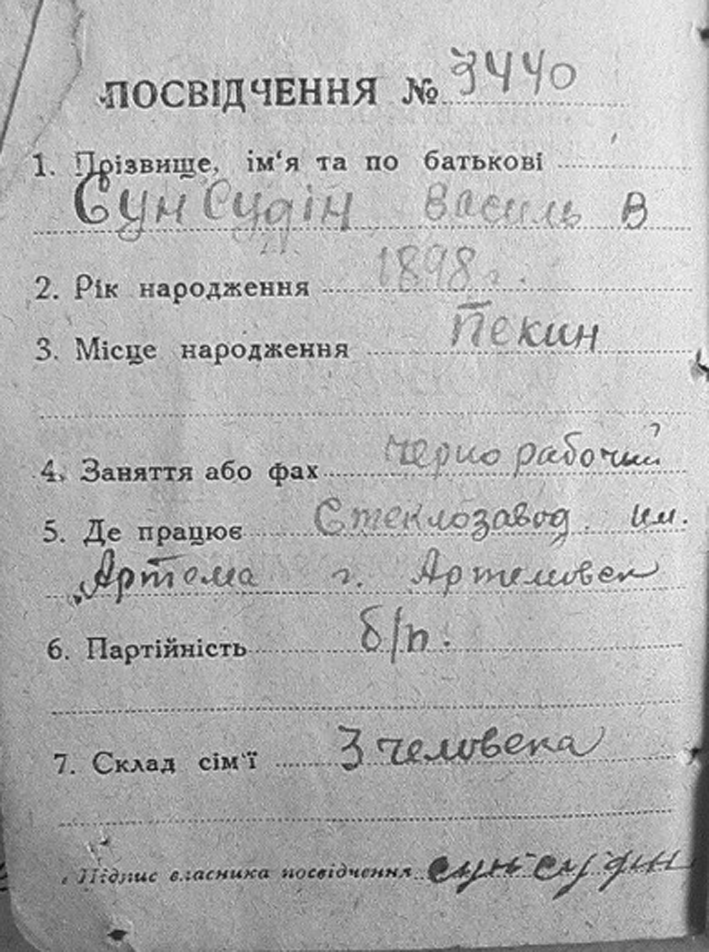 ПОСВІДЧЕННЯ № 3440
1. Прізвище, ім'я та по батькові
Сун Судін Василь В
2. Рік народження 1898 г.
3. Місце народження Пекин
4. Заняття або фах чернорабочий
5. Де працює Стеклозавод им.
Артема г. Артемовск
6. Партійність б/п.
7. Склад сім'ї 3 человека
Підпис власника посвідчення сун судин